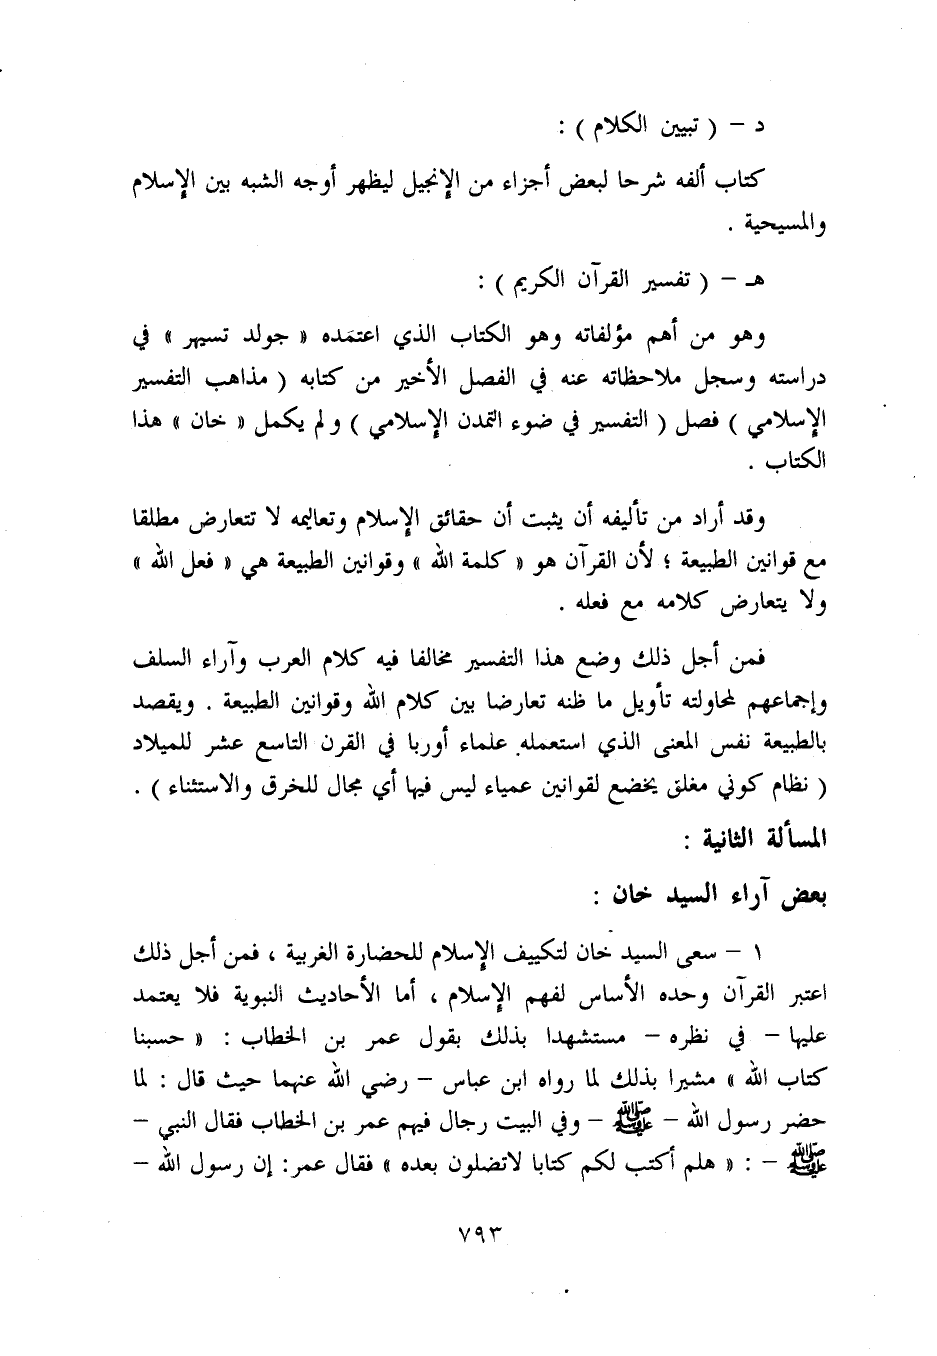 د – ( تبيين الكلام ) :
كتاب ألفه شرحا لبعض أجزاء من الإنجيل ليظهر أوجه الشبه بين الإسلام
والمسيحية .
هـ – ( تفسير القرآن الكريم ) :
وهو من أهم مؤلفاته وهو الكتاب الذي اعتمده « جولد تسيهر » في
دراسته وسجل ملاحظاته عنه في الفصل الأخير من كتابه ( مذاهب التفسير
الإسلامي ) فصل ( التفسير في ضوء التمدن الإسلامي ) ولم يكمل « خان » هذا
الكتاب .
وقد أراد من تأليفه أن يثبت أن حقائق الإسلام وتعاليمه لا تتعارض مطلقا
مع قوانين الطبيعة ؛ لأن القرآن هو « كلمة الله » وقوانين الطبيعة هي « فعل الله »
ولا يتعارض كلامه مع فعله .
فمن أجل ذلك وضع هذا التفسير مخالفا فيه كلام العرب وآراء السلف
وإجماعهم لمحاولته تأويل ما ظنه تعارضا بين كلام الله وقوانين الطبيعة . ويقصد
بالطبيعة نفس المعنى الذي استعمله علماء أوربا في القرن التاسع عشر للميلاد
( نظام كوني مغلق يخضع لقوانين عمياء ليس فيها أي مجال للخرق والاستثناء ) .
المسألة الثانية :
بعض آراء السيد خان :
١ – سعى السيد خان لتكييف الإسلام للحضارة الغربية ، فمن أجل ذلك
اعتبر القرآن وحده الأساس لفهم الإسلام ، أما الأحاديث النبوية فلا يعتمد
عليها – في نظره – مستشهدا بذلك بقول عمر بن الخطاب : « حسبنا
كتاب الله » مشيرا بذلك لما رواه ابن عباس – رضي الله عنهما حيث قال : لما
حضر رسول الله – ﷺ – وفي البيت رجال فيهم عمر بن الخطاب فقال النبي –
ﷺ – : « هلم أكتب لكم كتابا لاتضلون بعده » فقال عمر: إن رسول الله –
٧٩٣